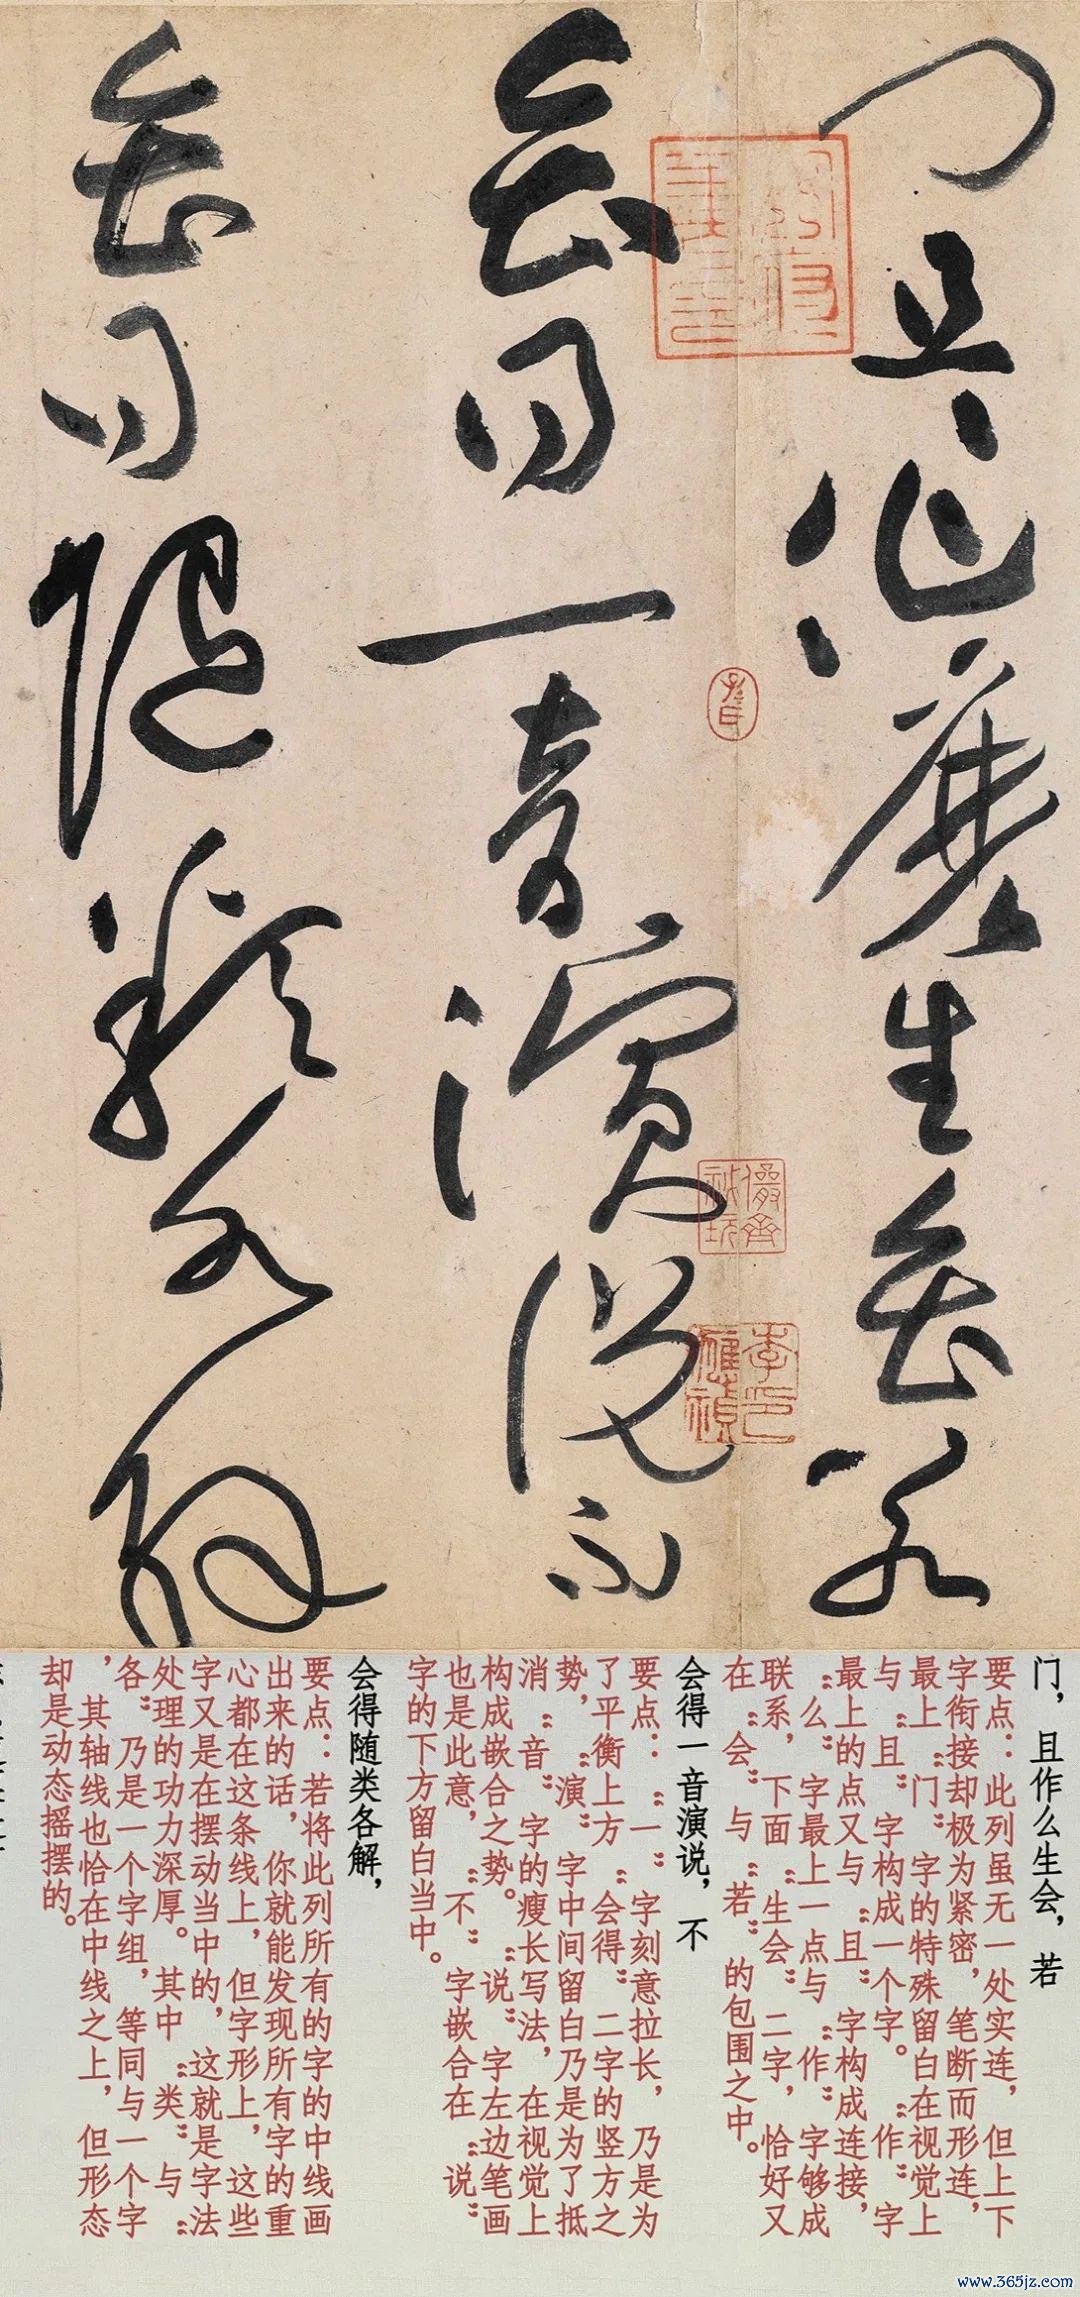 門且作麼生會若
會得一音演説不
會得隨類各解
儼齋秘玩
李應禎印
门，且作么生会，若
要点：此列虽无一处实连，但上下
字衔接却极为紧密，笔断而形连，
最上“门”字的特殊留白在视觉上
与“且”字构成一个字。“作”字
最上的点又与“且”字构成连接，
“么”字最上一点与“作”字够成
联系，下面“生会”二字，恰好又
在“会”与“若”的包围之中。
会得一音演说，不
要点：“一”字刻意拉长，乃是为
了平衡上方“会得”二字的竖方之
势，“演”字中间留白乃是为了抵
消“音”字的瘦长写法，在视觉上
构成嵌合之势。“说”字左边笔画
也是此意，“不”字嵌合在“说”
字的下方留白当中。
会得随类各解，
要点：若将此列所有的字的中线画
出来的话，你就能发现所有字的重
心都在这条线上，但字形上，这些
字又是在摆动当中的，这就是字法
处理的功力深厚。其中“类”与“
各”乃是一个字组，等同与一个字
，其轴线也恰在中线之上，但形态
却是动态摇摆的。
www.365jz.com